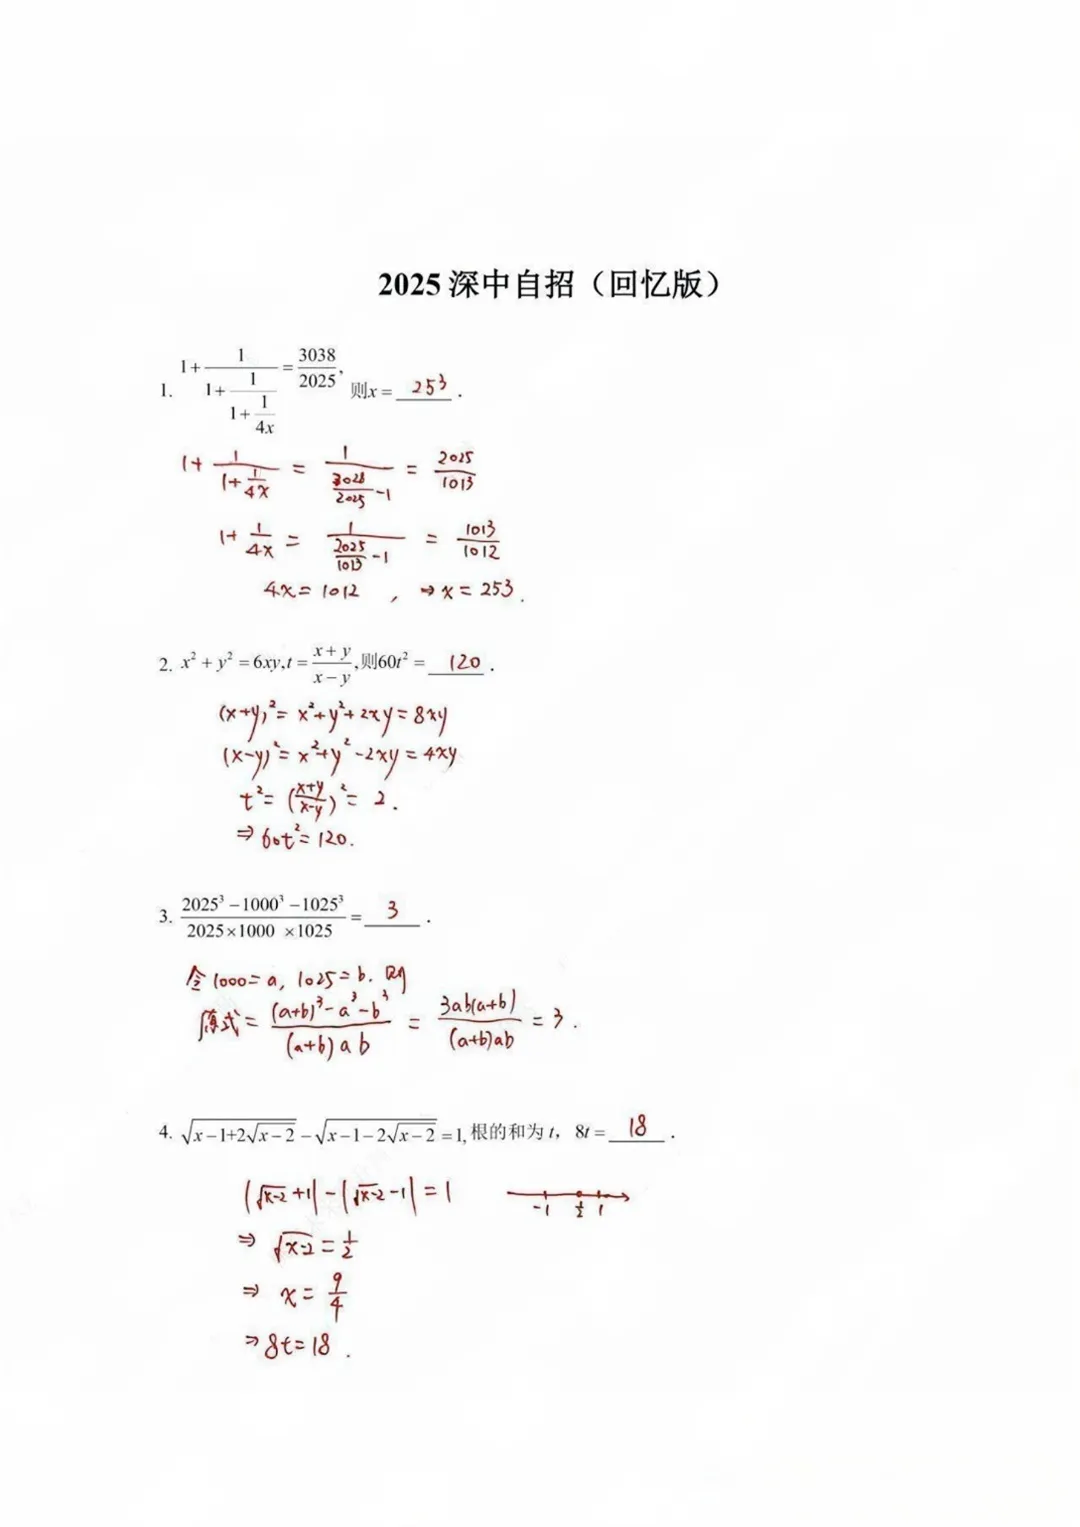 2025 深中自招（回忆版）
1. 1+1/(1+1/(1+1/(4x))) = 3038/2025, 则x = 253 .
1+1/(1+1/(4x)) = 1/(3038/2025 -1) = 2025/1013
1+1/(4x) = 1/(2025/1013 -1) = 1013/1012
4x = 1012 , ⇒ x = 253 .
2. x²+y²=6xy,t=(x+y)/(x−y),则60t² = 120 .
(x+y)²= x²+y²+2xy = 8xy
(x-y)²= x²+y²-2xy = 4xy
t²= ((x+y)/(x-y))²= 2 .
⇒ 60t²= 120.
3. (2025³−1000³−1025³)/(2025×1000 ×1025) = 3 .
令1000= a, 1025= b. 则
原式 = ((a+b)³-a³-b³)/((a+b)ab) = 3ab(a+b)/((a+b)ab) = 3 .
4. √(x−1+2√(x−2)) − √(x−1−2√(x−2)) = 1, 根的和为 t， 8t = 18 .
|√(x-2) +1| - |√(x-2) -1| = 1
-1 1/2 1
⇒ √(x-2) = 1/2
⇒ x = 9/4
⇒ 8t = 18 .